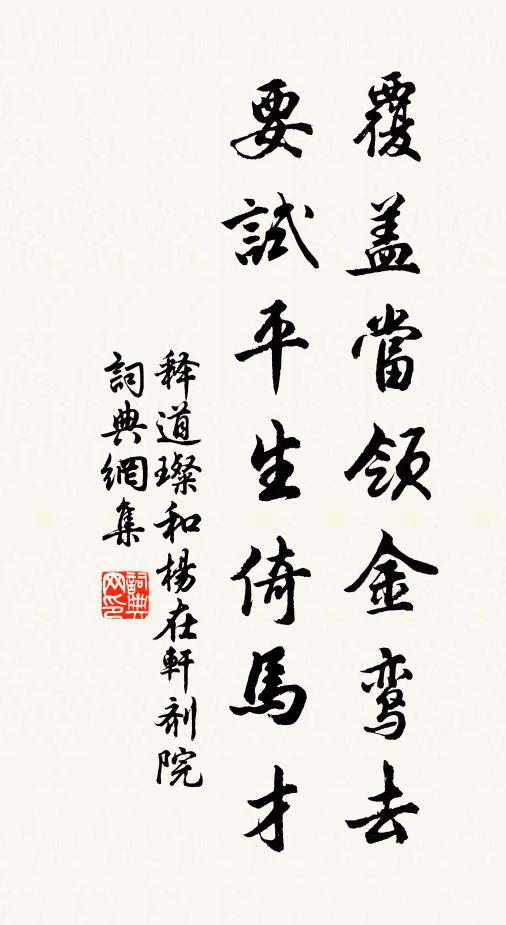 覆盖當領金鸾去
要試平生倚馬才
释道璨和楊在軒劑院
詞典網集
詞典
网印